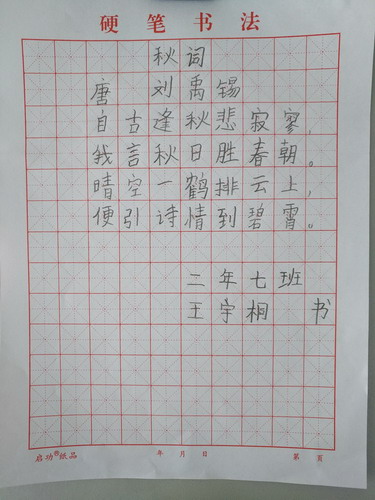 硬笔书法
秋词
唐 刘禹锡
自古逢秋悲寂寥,
我言秋日胜春朝。
晴空一鹤排云上,
便引诗情到碧霄。
二年七班
王宇桐 书
启功®纸品 年 月 日 第 页